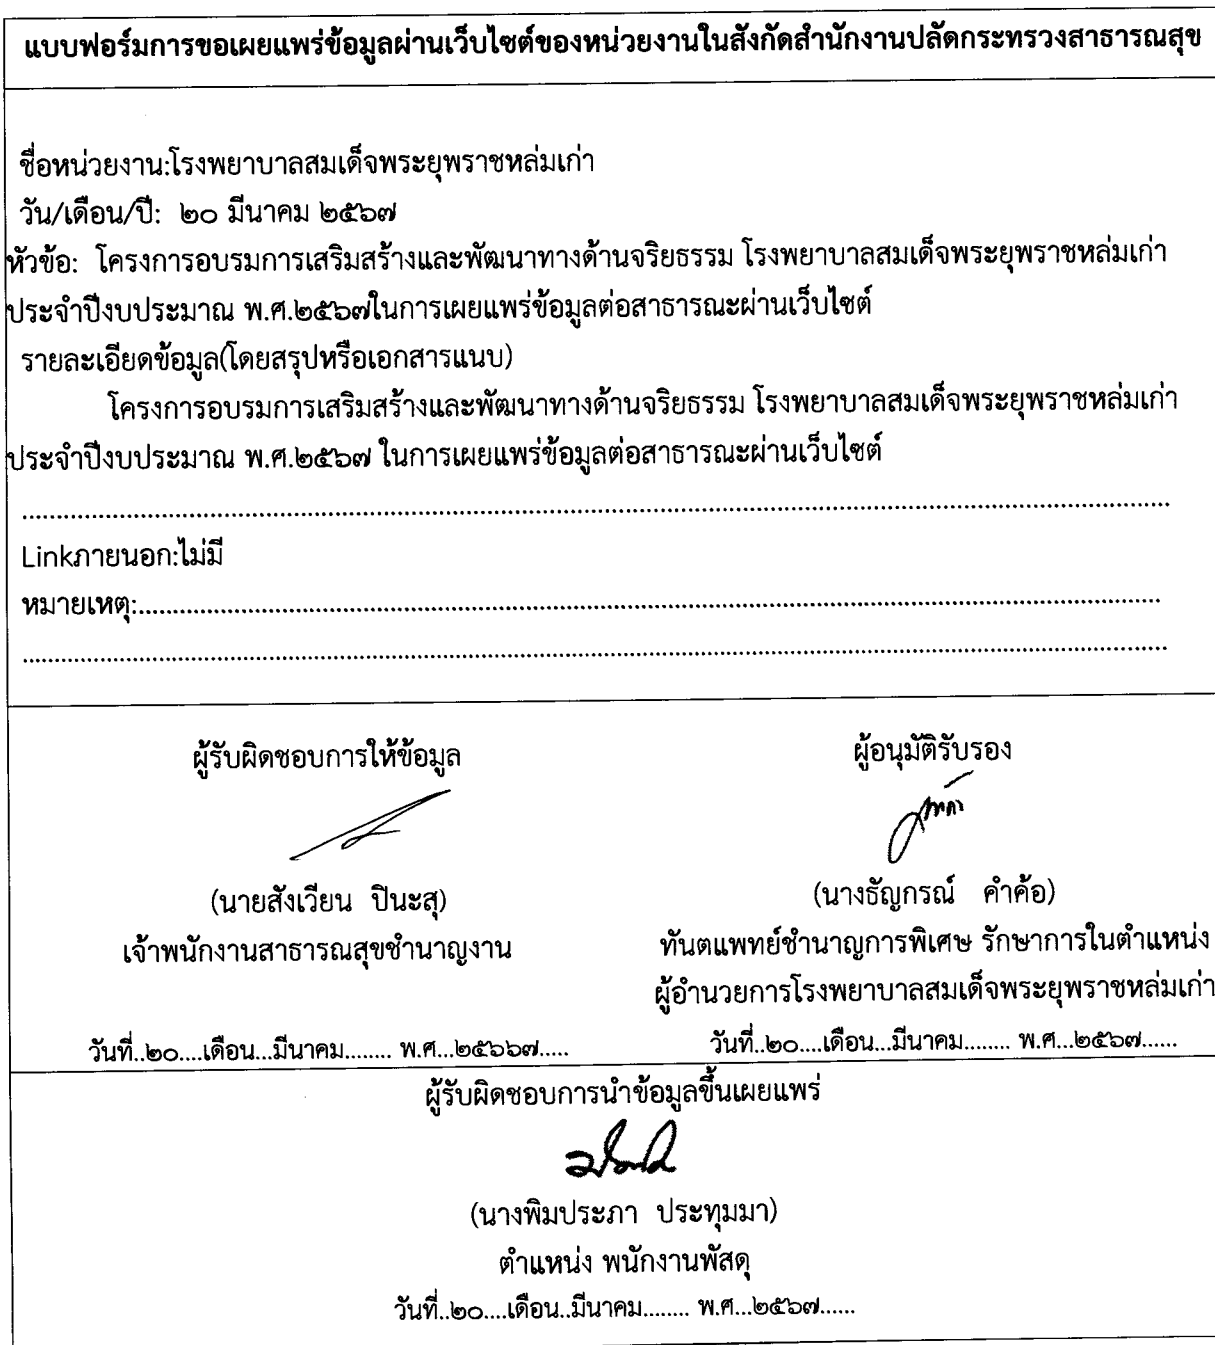 แบบฟอร์มการขอเผยแพร่ข้อมูลผ่านเว็บไซต์ของหน่วยงานในสังกัดสำนักงานปลัดกระทรวงสาธารณสุข
ชื่อหน่วยงาน:โรงพยาบาลสมเด็จพระยุพราชหล่มเก่า
วัน/เดือน/ปี: ๒๐ มีนาคม ๒๕๖๗
หัวข้อ: โครงการอบรมการเสริมสร้างและพัฒนาทางด้านจริยธรรม โรงพยาบาลสมเด็จพระยุพราชหล่มเก่า
ประจำปีงบประมาณ พ.ศ.๒๕๖๗ในการเผยแพร่ข้อมูลต่อสาธารณะผ่านเว็บไซต์
รายละเอียดข้อมูล(โดยสรุปหรือเอกสารแนบ)
โครงการอบรมการเสริมสร้างและพัฒนาทางด้านจริยธรรม โรงพยาบาลสมเด็จพระยุพราชหล่มเก่า
ประจำปีงบประมาณ พ.ศ.๒๕๖๗ ในการเผยแพร่ข้อมูลต่อสาธารณะผ่านเว็บไซต์
Linkภายนอก:ไม่มี
หมายเหตุ:..........
ผู้รับผิดชอบการให้ข้อมูล
(นายสังเวียน ปินะสุ)
เจ้าพนักงานสาธารณสุขชำนาญงาน
วันที่..๒๐....เดือน...มีนาคม........ พ.ศ...๒๕๖๖๗.....
ผู้อนุมัติรับรอง
(นางธัญกรณ์ คำค้อ)
ทันตแพทย์ชำนาญการพิเศษ รักษาการในตำแหน่ง
ผู้อำนวยการโรงพยาบาลสมเด็จพระยุพราชหล่มเก่า
วันที่..๒๐....เดือน...มีนาคม........ พ.ศ...๒๕๖๗......
ผู้รับผิดชอบการนำข้อมูลขึ้นเผยแพร่
(นางพิมประภา ประทุมมา)
ตำแหน่ง พนักงานพัสดุ
วันที่..๒๐....เดือน..มีนาคม........ พ.ศ...๒๕๖๗......